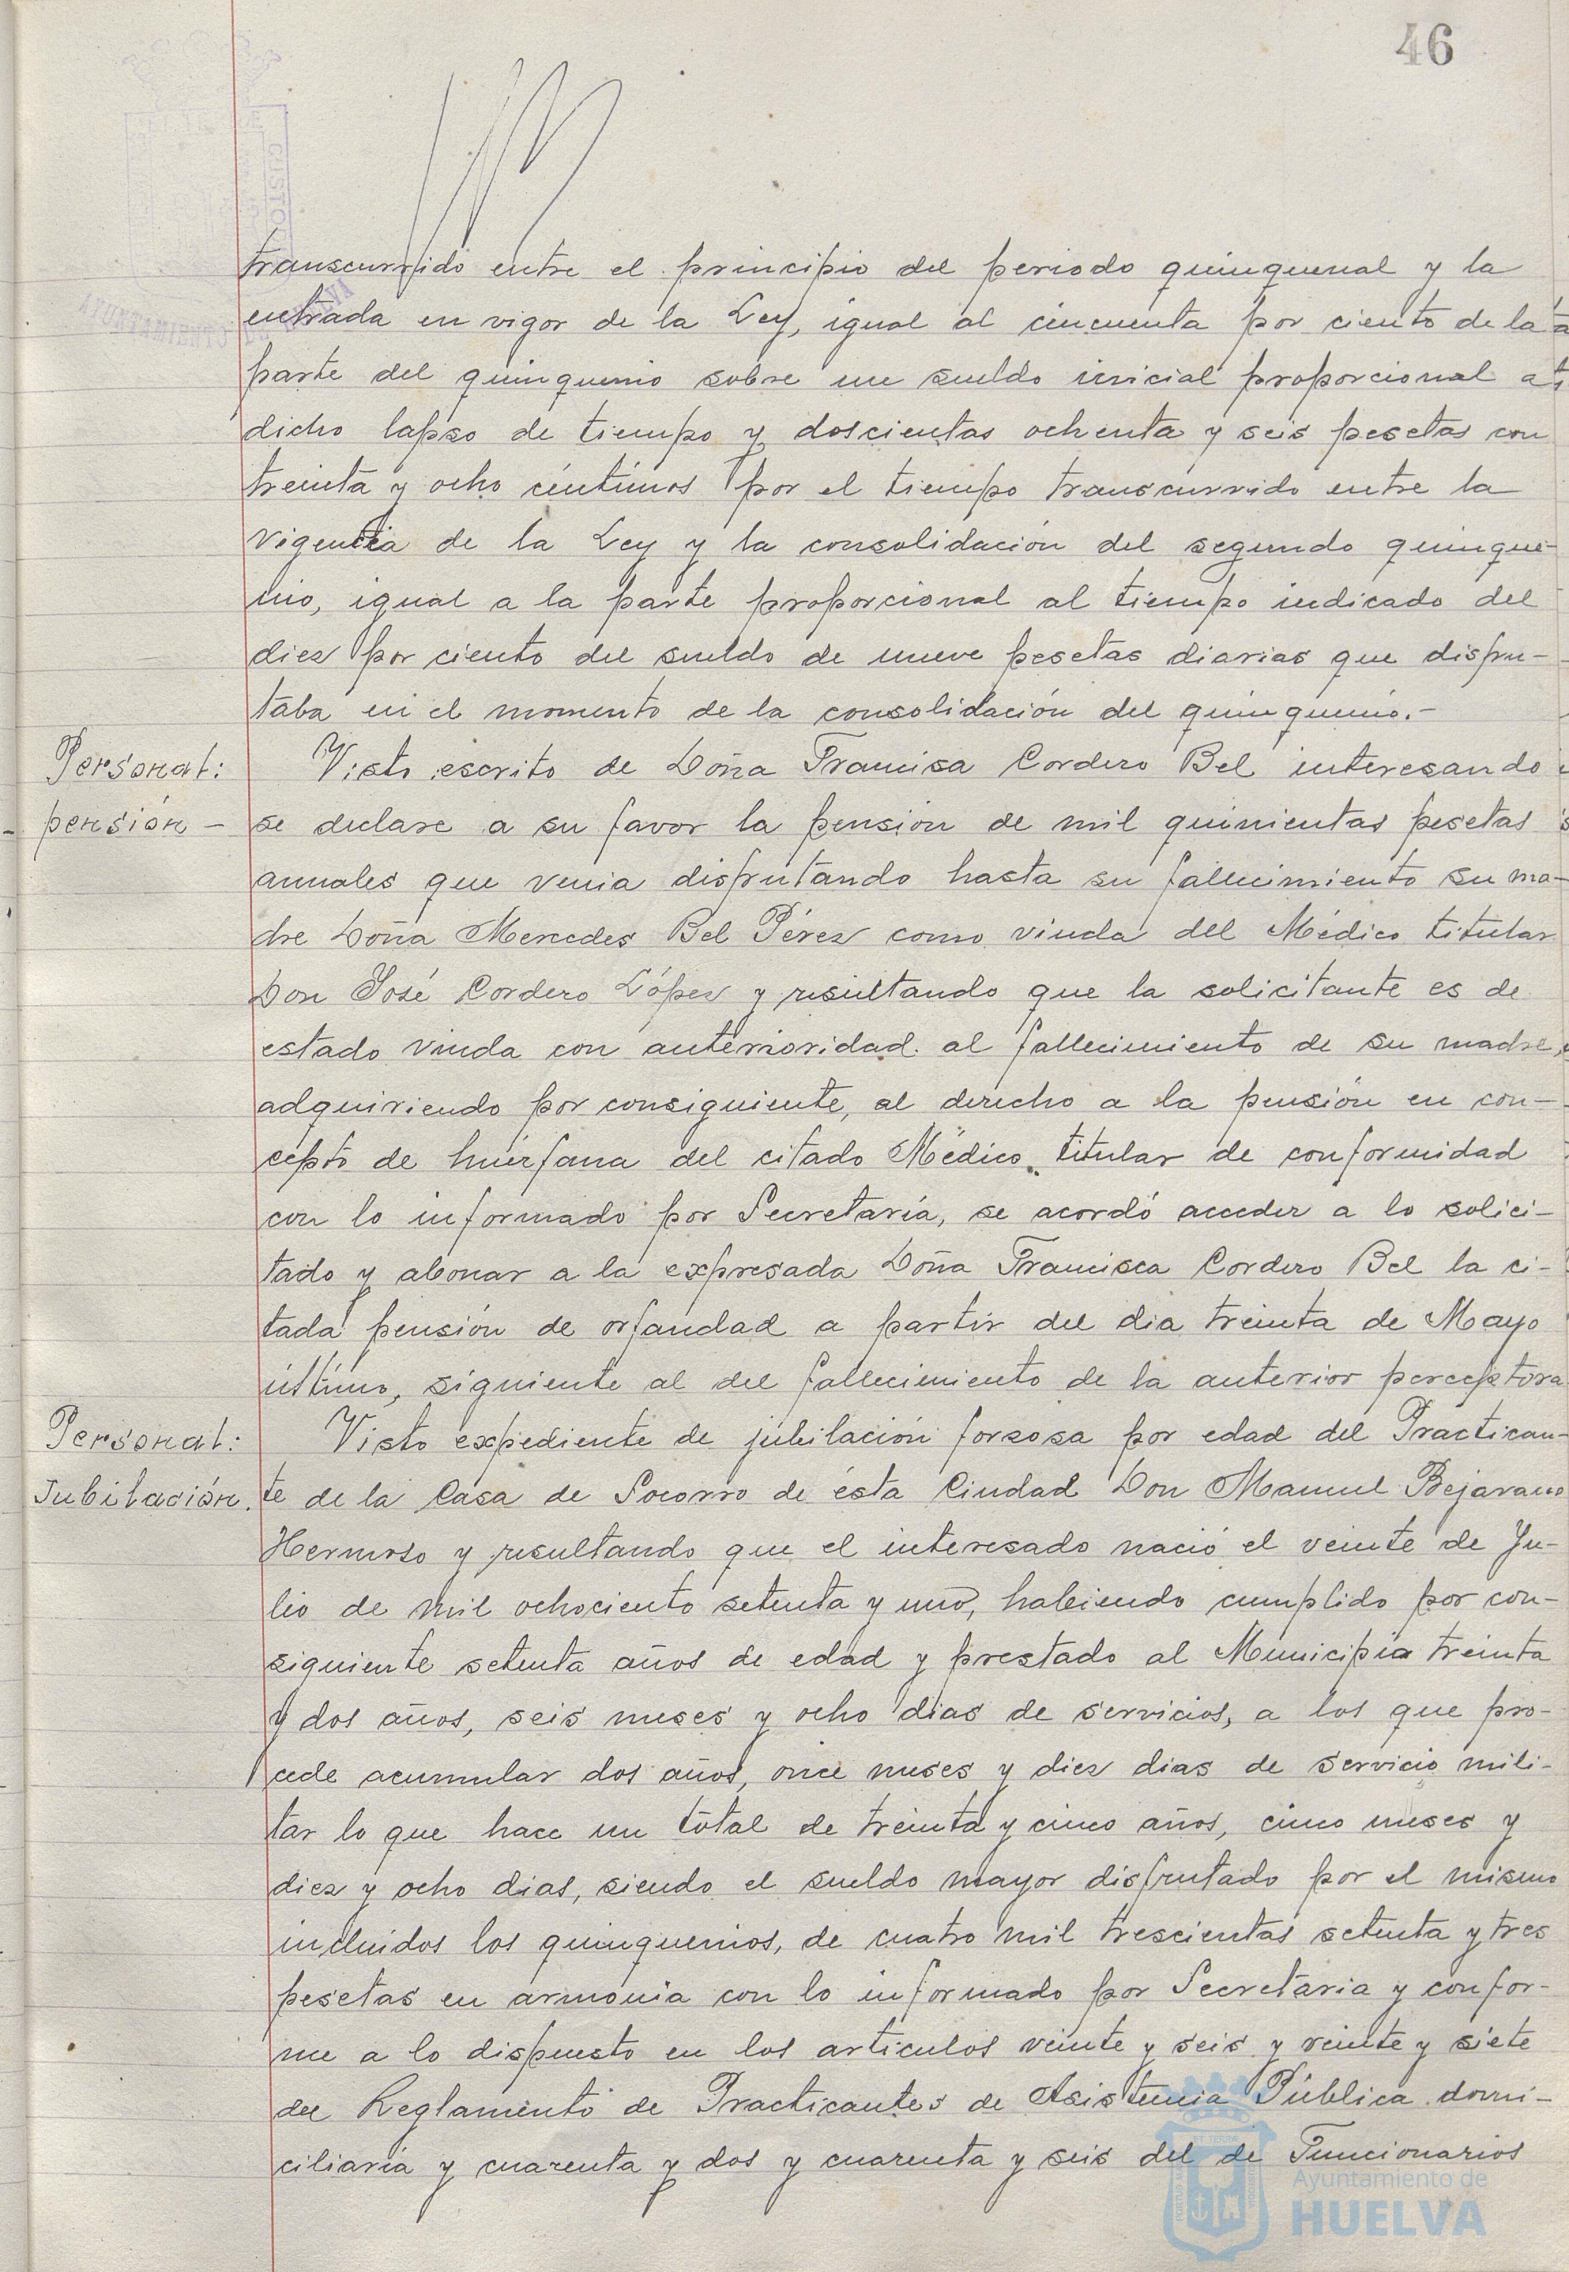 46
transcurrido entre el principio del periodo quinquenal y la
entrada en vigor de la Ley, igual al cincuenta por ciento de la
parte del quinquenio sobre un sueldo inicial proporcional a
dicho lapso de tiempo y doscientas ochenta y seis pesetas con
treinta y ocho céntimos por el tiempo transcurrido entre la
vigencia de la Ley y la consolidación del segundo quinque-
nio, igual a la parte proporcional al tiempo indicado del
diez por ciento del sueldo de nueve pesetas diarias que disfru-
taba en el momento de la consolidación del quinquenio.-
Personal:
pensión -
Visto escrito de Doña Francisa Cordero Bel interesando
se declare a su favor la pensión de mil quinientas pesetas
anuales que venia disfrutando hasta su fallecimiento su ma-
dre Doña Mercedes Bel Pérez como viuda del Médico titular
Don José Cordero López y resultando que la solicitante es de
estado viuda con anterioridad al fallecimiento de su madre,
adquiriendo por consiguiente, el derecho a la pensión en con-
cepto de huérfana del citado Médico titular de conformidad
con lo informado por Secretaría, se acordó acceder a lo solici-
tado y abonar a la expresada Doña Francisca Cordero Bel la ci-
tada pensión de orfandad a partir del dia treinta de Mayo
último, siguiente al del fallecimiento de la anterior perceptora
Personal:
Jubilación.
Visto expediente de jubilación forzosa por edad del Practican-
te de la Casa de Socorro de ésta Ciudad Don Manuel Bejarano
Hermoso y resultando que el interesado nació el veinte de Ju-
lio de mil ochociento setenta y uno, habiendo cumplido por con-
siguiente setenta años de edad y prestado al Municipio treinta
y dos años, seis meses y ocho dias de servicios, a los que pro-
cede acumular dos años, once meses y diez dias de servicio mili-
tar lo que hace un total de treinta y cinco años, cinco meses y
diez y ocho dias, siendo el sueldo mayor disfrutado por el mismo
incluidos los quinquenios, de cuatro mil trescientas setenta y tres
pesetas en armonia con lo informado por Secretaria y confor-
me a lo dispuesto en los articulos veinte y seis y veinte y siete
del Reglamento de Practicantes de Asistencia Pública domi-
ciliaria y cuarenta y dos y cuarenta y seis del de Funcionarios
Ayuntamiento de
HUELVA